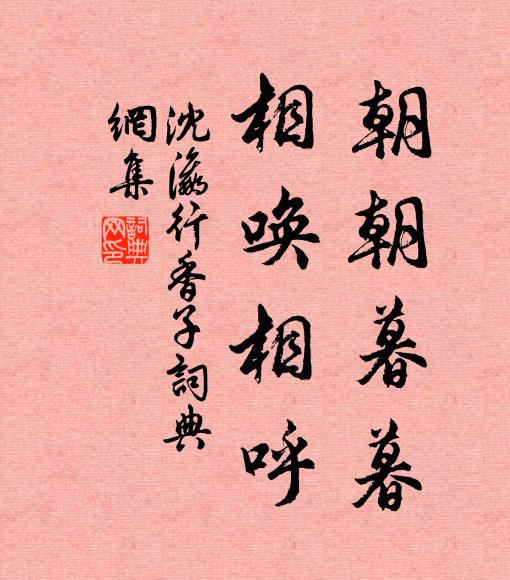 朝朝暮暮
相唤相呼
沈瀛行香子詞典
網集
詞典網印